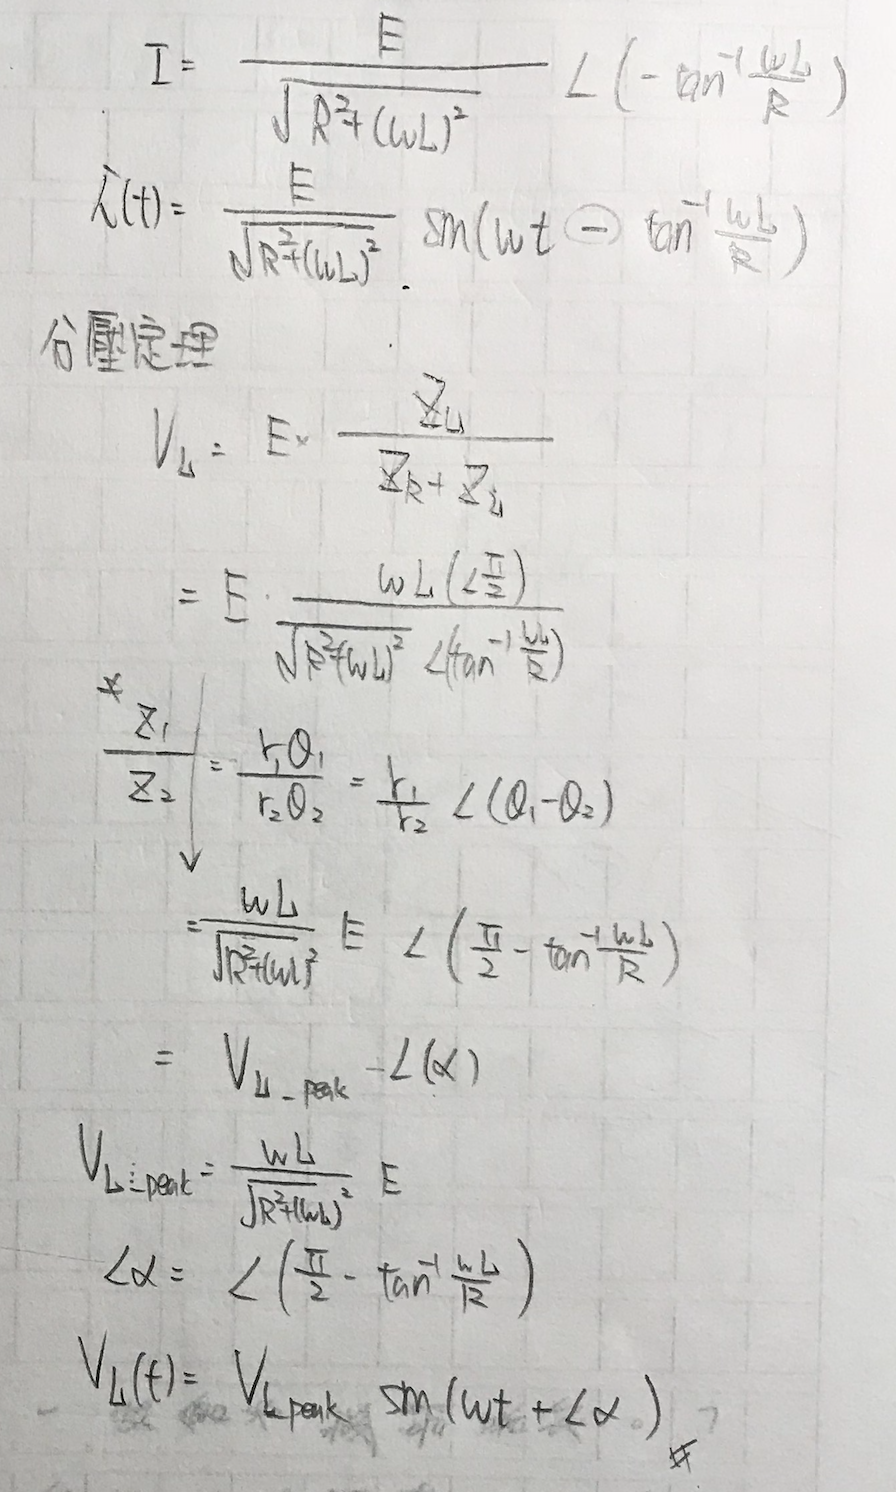 I = E / √(R²+(ωL)²) ∠(-tan⁻¹ ωL/R)
i(t) = E / √(R²+(ωL)²) sin(ωt ⊖ tan⁻¹ ωL/R)
分壓定理
V_L = E × Z_L / (Z_R + Z_L)
= E · ωL(∠π/2) / √(R²+(ωL)²) ∠(tan⁻¹ ωL/R)
* Z₁/Z₂ = r₁θ₁/r₂θ₂ = r₁/r₂ ∠(θ₁-θ₂)
= ωL / √(R²+(ωL)²) E ∠(π/2 - tan⁻¹ ωL/R)
= V_L-peak -∠(α)
V_L-peak = ωL / √(R²+(ωL)²) E
∠α = ∠(π/2 - tan⁻¹ ωL/R)
V_L(t) = V_L-peak sin(ωt + ∠α) #